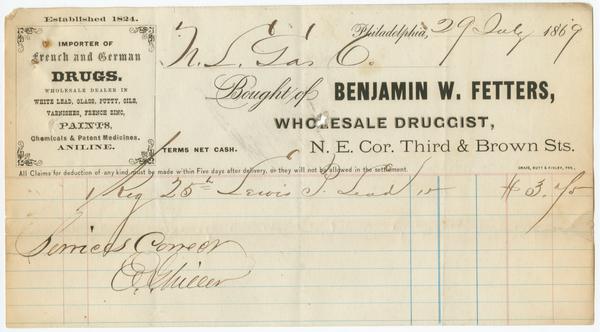 Established 1824.
IMPORTER OF
French and German
DRUGS.
WHOLESALE DEALER IN
WHITE LEAD, GLASS, PUTTY, OILS,
VARNISHES, FRENCH ZINC,
PAINTS,
Chemicals & Patent Medicines.
ANILINE.
Philadelphia, 29 July 1869
N. L. Gas C.
Bought of BENJAMIN W. FETTERS,
WHOLESALE DRUGGIST,
TERMS NET CASH. N. E. Cor. Third & Brown Sts.
All Claims for deduction of any kind must be made within Five days after delivery, or they will not be allowed in the settlement.
1 Keg 25 Lewis P. Lead $3.
Correct